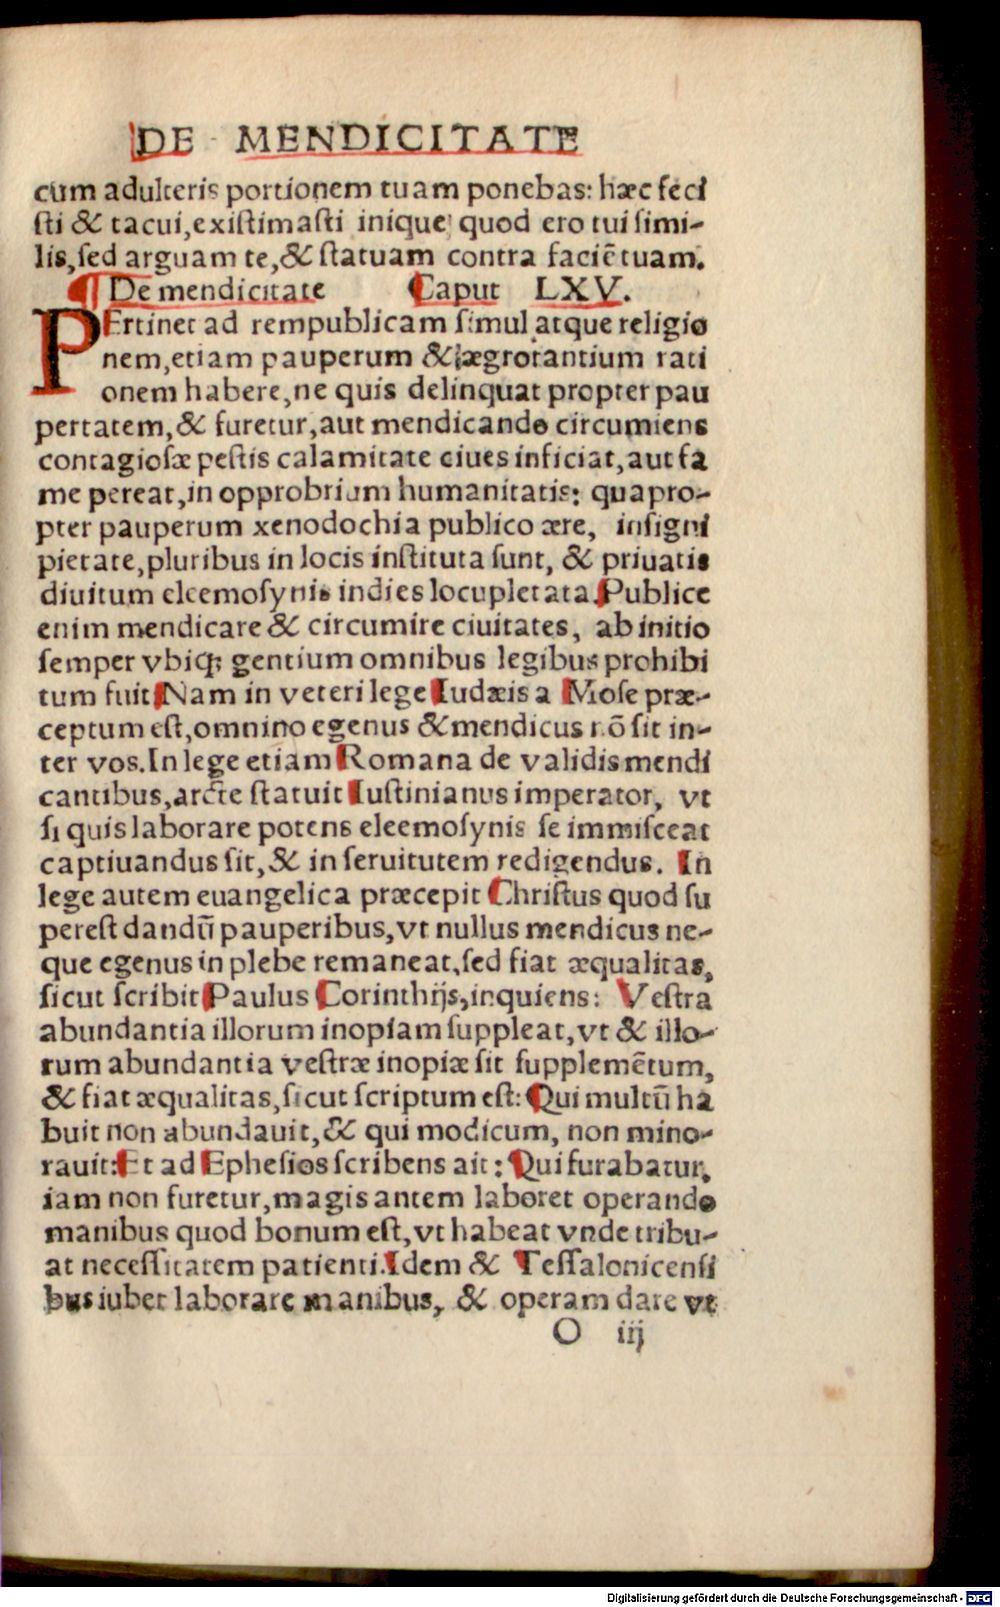 DE MENDICITATE
cum adulteris portionem tuam ponebas: hæc feci
sti & tacui, existimasti inique quod ero tui simi-
lis, sed arguam te, & statuam contra faciē tuam.
¶ De mendicitate Caput LXV.
PErtinet ad rempublicam simul atque religio
nem, etiam pauperum & ægrotantium rati
onem habere, ne quis delinquat propter pau
pertatem, & furetur, aut mendicando circumiens
contagiosæ pestis calamitate ciues inficiat, aut fa
me pereat, in opprobrium humanitatis: quapro-
pter pauperum xenodochia publico ære, insigni
pietate, pluribus in locis instituta sunt, & priuatis
diuitum eleemosynis indies locupletata. Publice
enim mendicare & circumire ciuitates, ab initio
semper vbiq; gentium omnibus legibus prohibi
tum fuit. Nam in veteri lege Iudæis a Mose præ-
ceptum est, omnino egenus & mendicus nō sit in-
ter vos. In lege etiam Romana de validis mendi
cantibus, arcte statuit Iustinianus imperator, vt
si quis laborare potens eleemosynis se immisceat
captiuandus sit, & in seruitutem redigendus. In
lege autem euangelica præcepit Christus quod su
perest dandū pauperibus, vt nullus mendicus ne-
que egenus in plebe remaneat, sed fiat æqualitas,
sicut scribit Paulus Corinthijs, inquiens: Vestra
abundantia illorum inopiam suppleat, vt & illo-
rum abundantia vestræ inopiæ sit supplemētum,
& fiat æqualitas, sicut scriptum est: Qui multū ha
buit non abundauit, & qui modicum, non mino-
rauit: Et ad Ephesios scribens ait: Qui furabatur,
iam non furetur, magis antem laboret operando
manibus quod bonum est, vt habeat vnde tribu-
at necessitatem patienti. Idem & Tessalonicensi
bus iubet laborare manibus, & operam dare vt
O iij
Digitalisierung gefördert durch die Deutsche Forschungsgemeinschaft - DFG